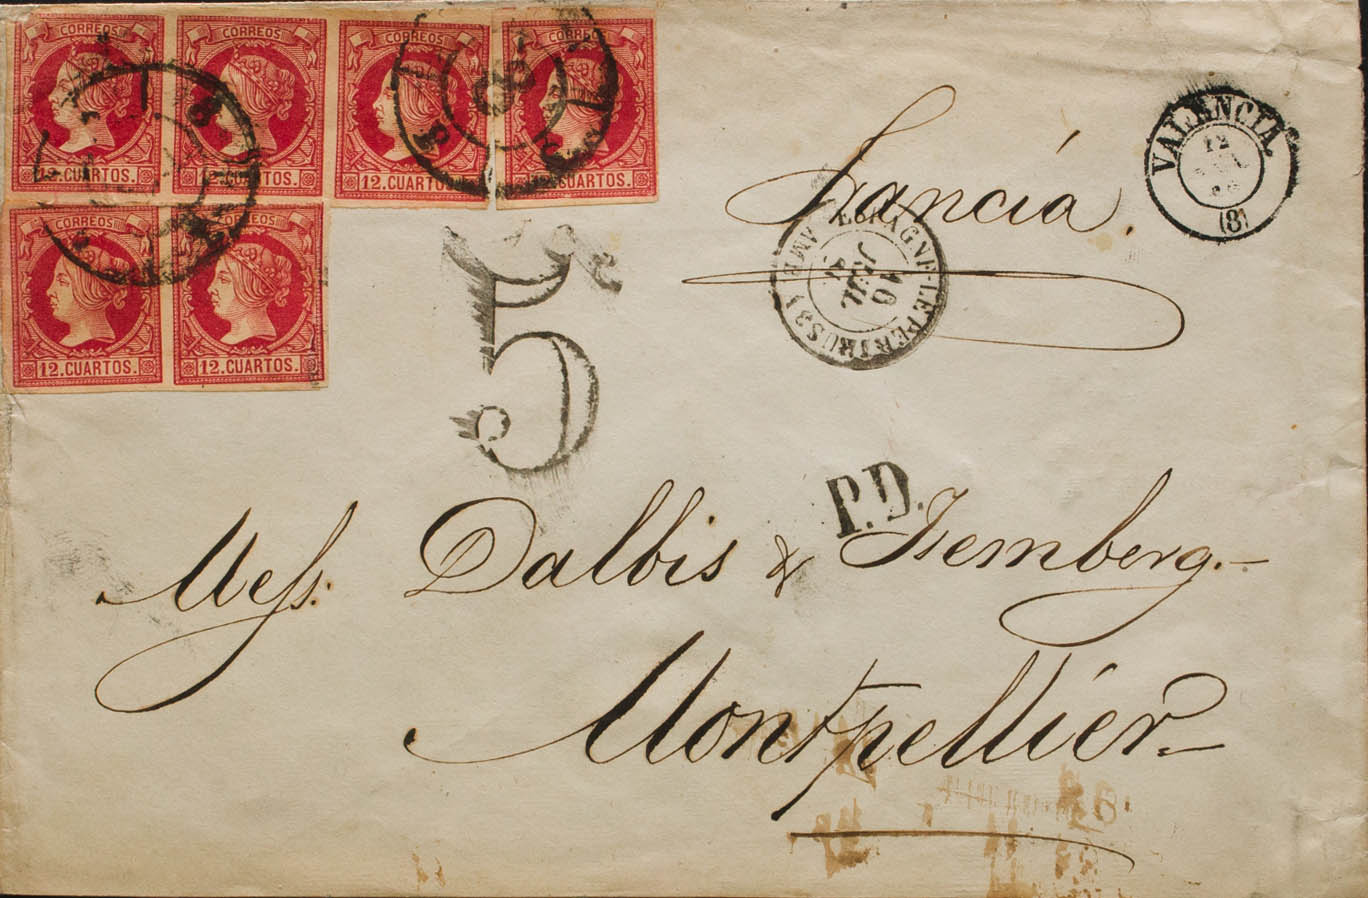 CORREOS CORREOS CORREOS CORREOS
12 CUARTOS. 12 CUARTOS. 12. CUARTOS. 12. CUARTOS.
CORREOS CORREOS
12. CUARTOS. 12. CUARTOS.
VALENCIA.
12
(8)
Francia.
ESPAGNE-LE PERTHUS
16
JUIL
5
P.D.
Mess. Dalbis & Isemberg.-
Montpellier-